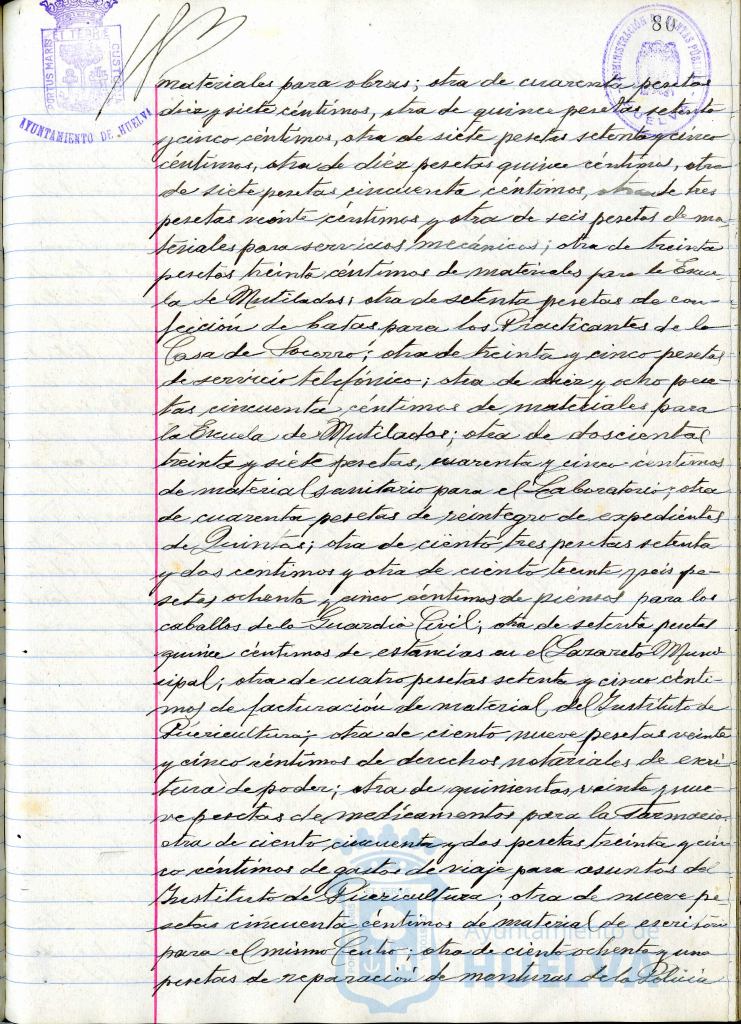 80
PORTUS MARIS ET TERRE CUSTODIA
AYUNTAMIENTO DE HUELVA
HUELVA
materiales para obras; otra de cuarenta pesetas
diez y siete céntimos, otra de quince pesetas setenta
y cinco céntimos, otra de siete pesetas setenta y cinco
céntimos, otra de diez pesetas quince céntimos, otra
de siete pesetas cincuenta céntimos, otra de tres
pesetas veinte céntimos y otra de seis pesetas de ma-
teriales para servicios mecánicos; otra de treinta
pesetas treinta céntimos de materiales para la Escue-
la de Mutilados; otra de setenta pesetas de con-
feición de batas para los Practicantes de la
Casa de Socorro; otra de treinta y cinco pesetas
de servicio telefónico; otra de diez y ocho pese-
tas cincuenta céntimos de materiales para
la Escuela de Mutilados; otra de doscientas
treinta y siete pesetas, cuarenta y cinco céntimos
de material sanitario para el Laboratorio; otra
de cuarenta pesetas de reintegro de expedientes
de Quintas; otra de ciento tres pesetas setenta
y dos céntimos y otra de ciento treinta y seis pe-
setas ochenta y cinco céntimos de piensos para los
caballos de la Guardia Civil; otra de setenta pesetas
quince céntimos de estancias en el Lazareto Muni-
cipal; otra de cuatro pesetas setenta y cinco cénti-
mos de facturación de material del Instituto de
Puericultura; otra de ciento nueve pesetas veinte
y cinco céntimos de derechos notariales de escri-
tura de poder; otra de quinientas veinte y nue-
ve pesetas de medicamentos para la Farmacia,
otra de ciento cincuenta y dos pesetas treinta y cin-
co céntimos de gastos de viaje para asuntos del
Instituto de Puericultura; otra de nueve pe-
setas cincuenta céntimos de material de escritorio
para el mismo Centro; otra de ciento ochenta y una
pesetas de reparación de monturas de la Policía
Ayuntamiento de
HUELVA